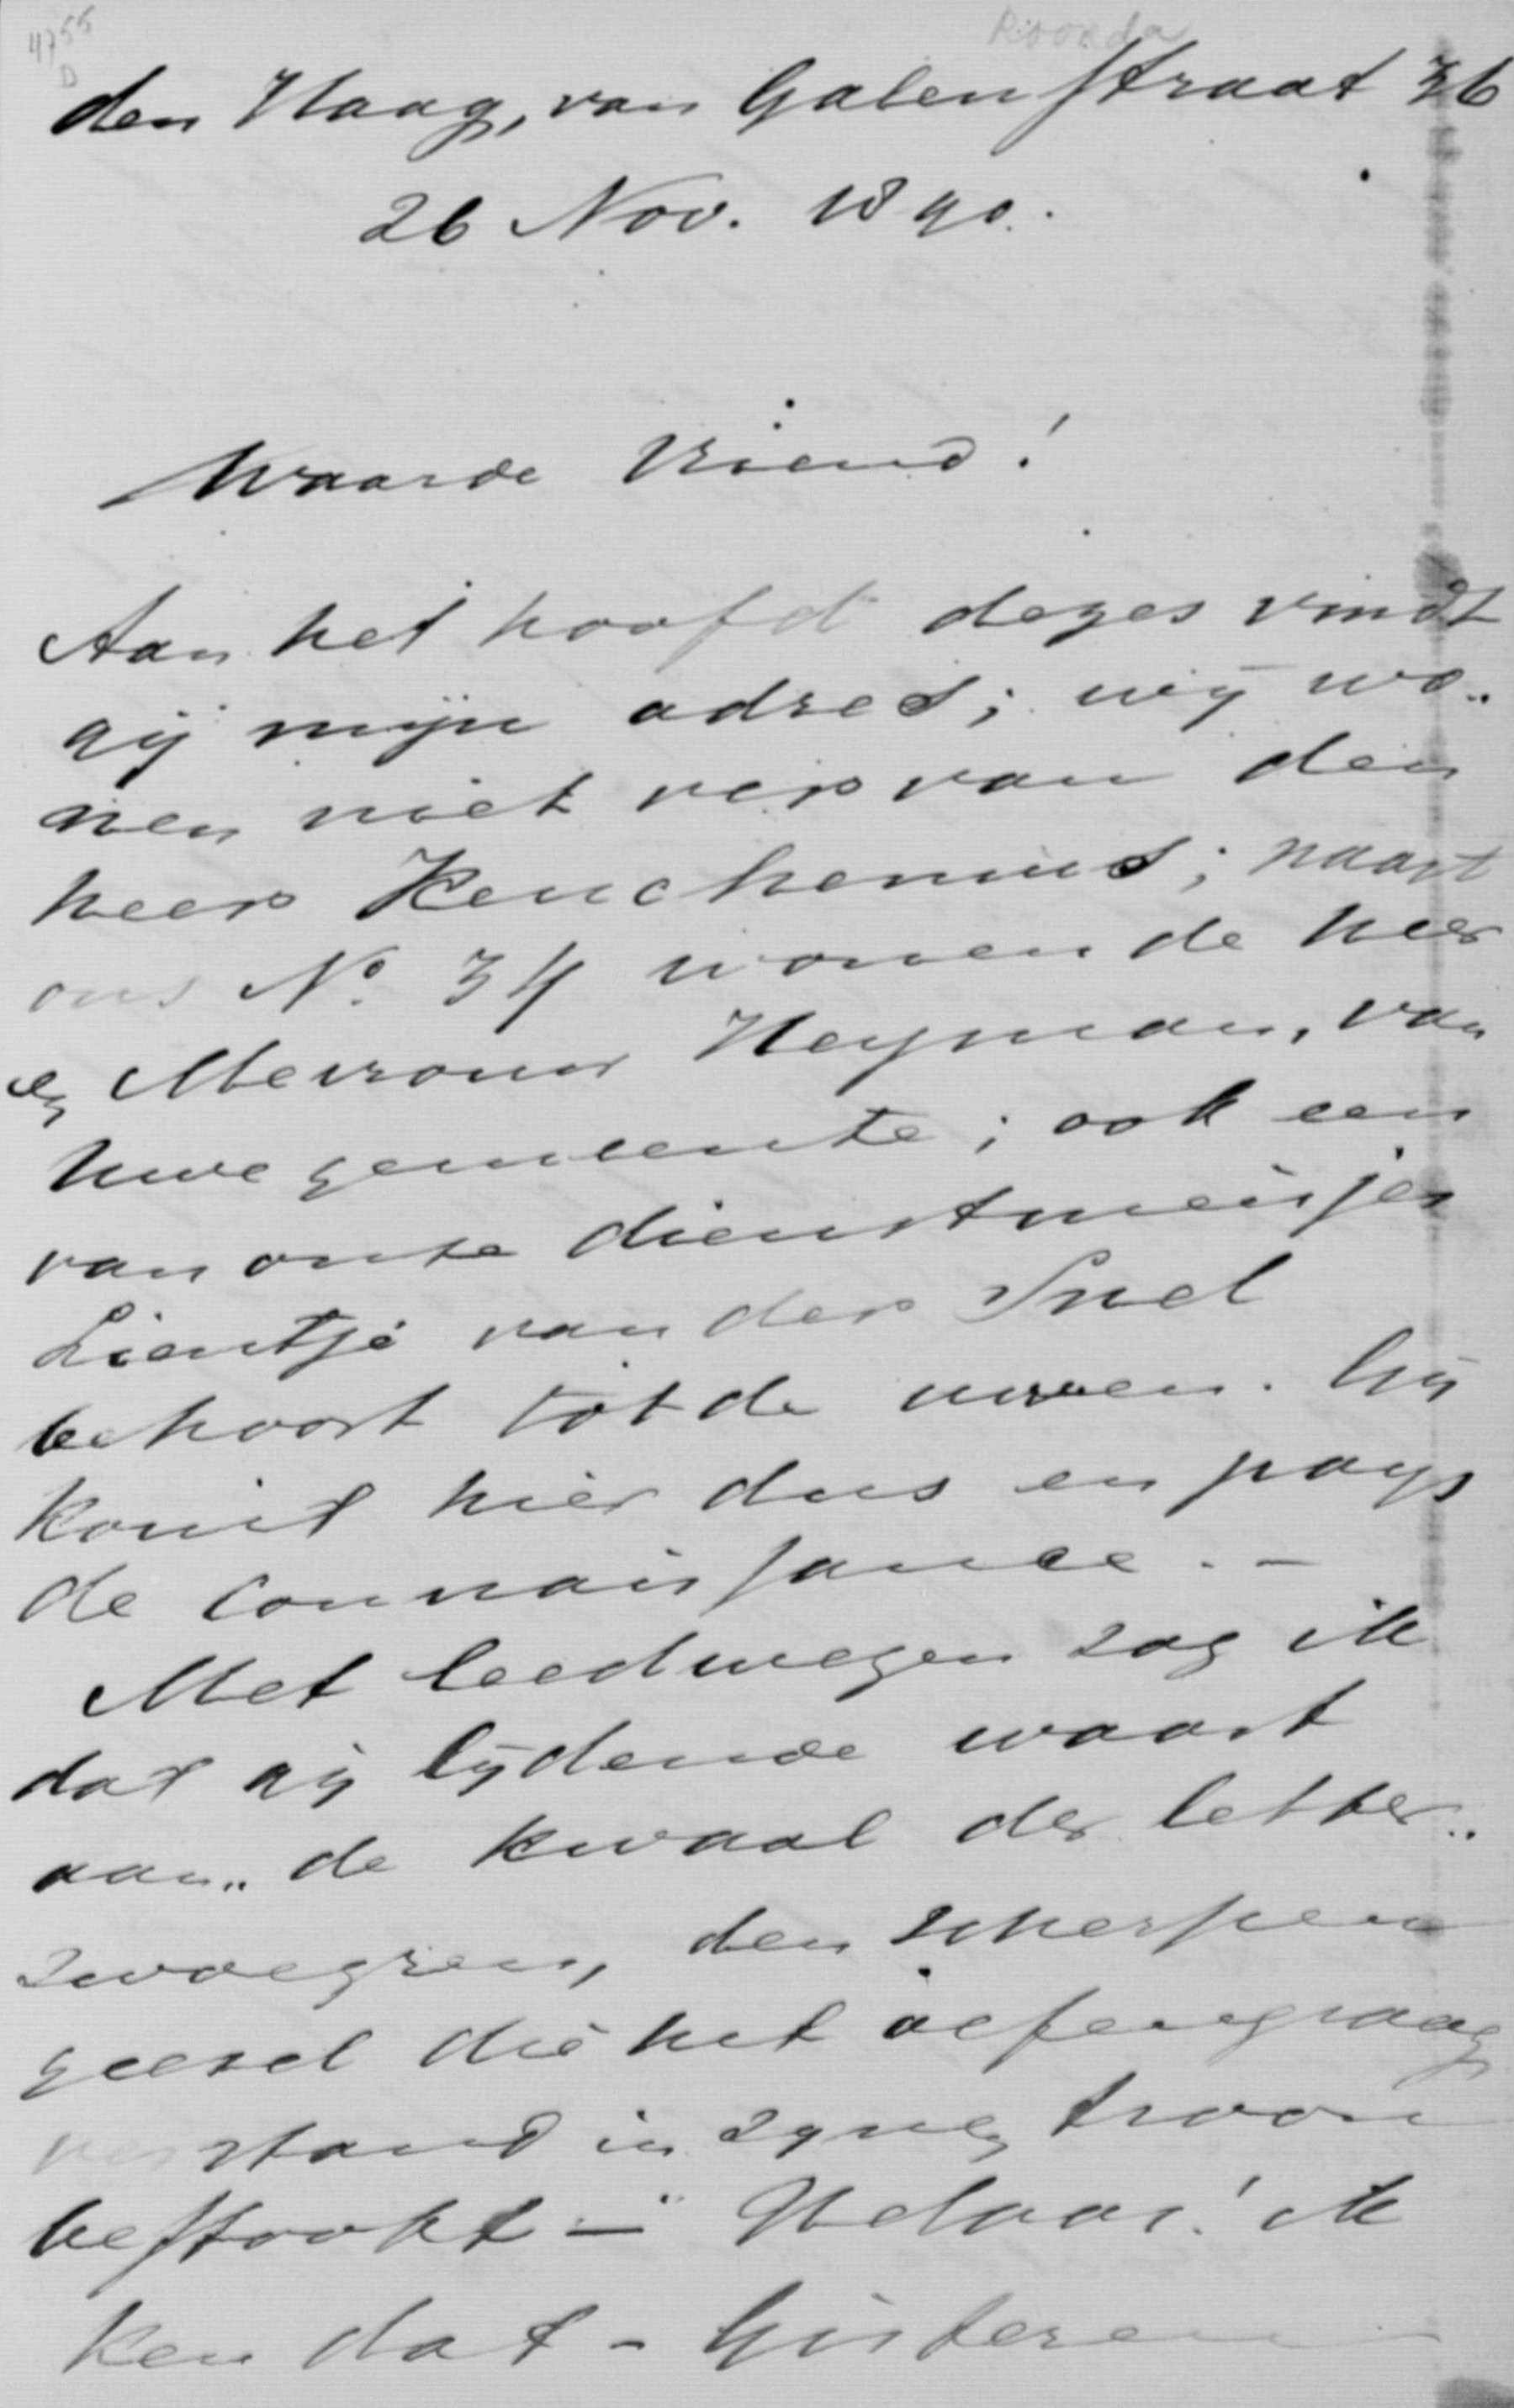 4755
D
Roorda
den Haag, van Galenstraat 36
26 Nov. 1890.
Waarde Vriend!
Aan het hoofd dezes vindt
gij mijn adres; wij wo„
nen niet ver van den
heer Keuchenius; naast
ons No. 34 wonen de heer
en Mevrouw Heyman, van
Uwe gemeente; ook een
van onze dienstmeisjes
Lientje van der Snel
behoort tot de uwen. Gij
komt hier dus en pays
de connaissance. -
Met leedwezen zag ik
dat gij lijdende waart
aan „de kwaal der letter„
zwoegren, den scherpen
geesel die het oefengraag
verstand in zynen troon
bestookt -" Helaas! ik
ken dat - Gisteren